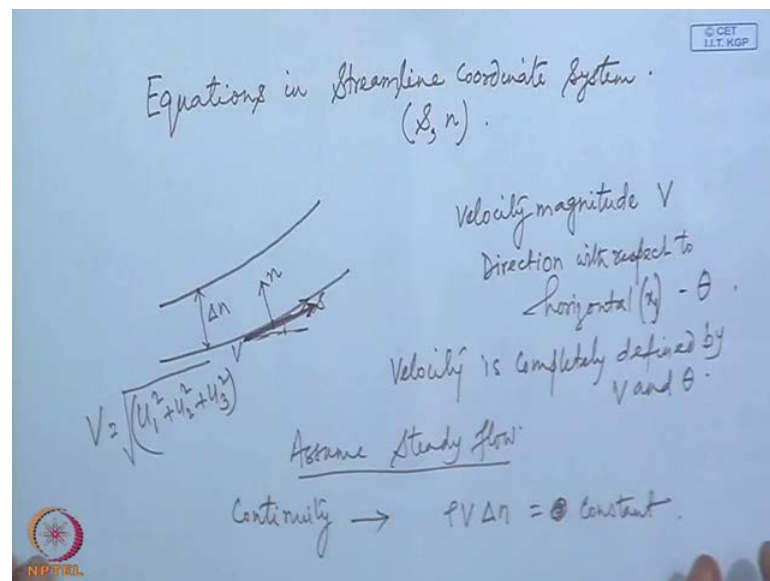 © CET
I.I.T. KGP
Equations in Streamline Coordinate System.
(S, n).
Velocity magnitude V
Direction with respect to
horizontal (x) - θ.
Velocity is completely defined by
V and θ.
Δn
n
S
V
V = √(u₁² + u₂² + u₃²)
Assume Steady flow.
Continuity → ρV Δn = Constant.
NPTEL